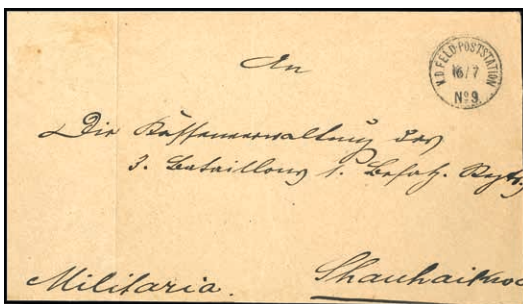 An
K.D. FELD-POSTSTATION
16/7
No 9.
Die Kassenverwaltung des
3. Bataillons 1. Besatz. Regts.
Militaria.
Shanhaikw